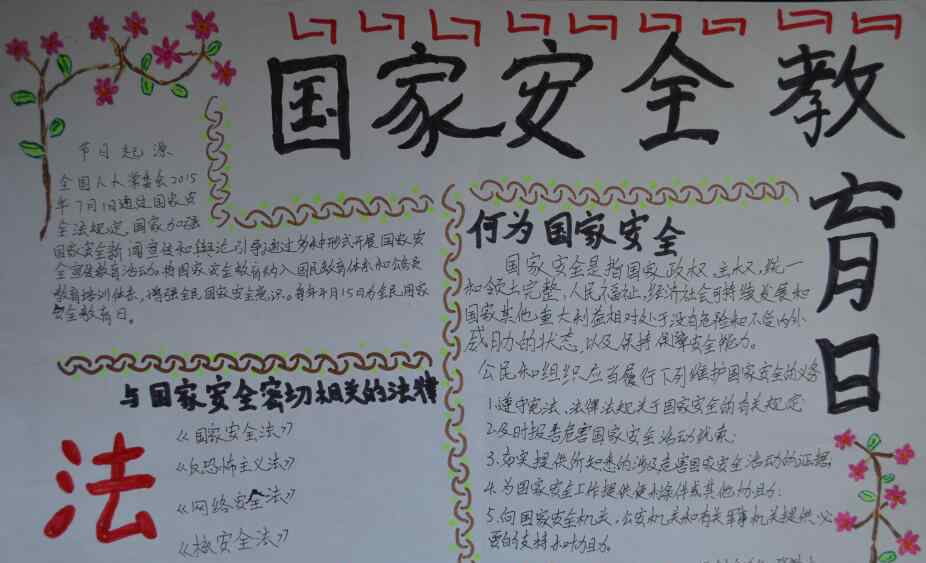 国家安全教
育日
节日起源
全国人大常委会2015
年7月1日通过国家安
全法规定,国家加强
国家安全新闻宣传和舆论引导,通过多种形式开展国家安
全宣传教育活动,将国家安全教育纳入国民教育体系和公务员
教育培训体系,增强全民国家安全意识。每年4月15日为全民国家
安全教育日。
与国家安全密切相关的法律
法
《国家安全法》
《反恐怖主义法》
《网络安全法》
《核安全法》
何为国家安全
国家安全是指国家政权、主权、统一
和领土完整、人民福祉、经济社会可持续发展和
国家其他重大利益相对处于没有危险和不受内外
威胁的状态,以及保持保障安全能力。
公民和组织应当履行下列维护国家安全的义务
1.遵守宪法、法律法规关于国家安全的有关规定;
2.及时报告危害国家安全活动线索;
3.如实提供所知悉的涉及危害国家安全活动的证据;
4.为国家安全工作提供便利条件或其他协助;
5.向国家安全机关、公安机关和有关军事机关提供必
要的支持和协助。